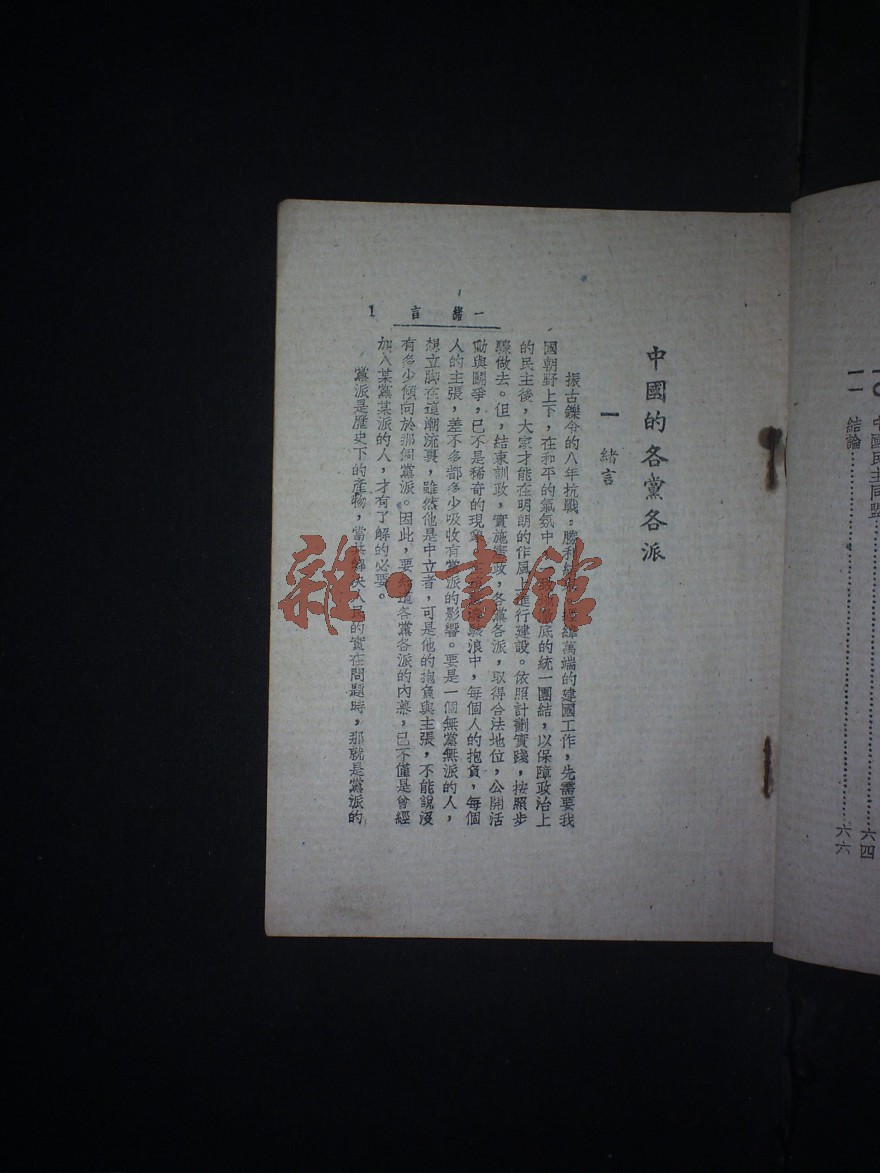 一〇 中國民主同盟……六四
一一 結論……六六
中國的各黨各派
一 緒言
振古鑠今的八年抗戰。勝利結 萬端的建國工作，先需要我
國朝野上下，在和平的氣氛中 底的統一團結，以保障政治上
的民主後，大家才能在明朗的作風上進行建設。依照計劃實踐，按照步
驟做去。但，結束訓政，實施憲政，各黨各派，取得合法地位，公開活
動與鬭爭，已不是稀奇的現象 浪中，每個人的抱負，每個
人的主張，差不多都多少吸收有黨派的影響。要是一個無黨無派的人，
想立脚在這潮流裏，雖然他是中立者，可是他的抱負與主張，不能說沒
有多少傾向於那個黨派。因此，要知道各黨各派的內幕，已不僅是曾經
加入某黨某派的人，才有了解的必要。
黨派是歷史下的產物，當其解決人民的實在問題時，那就是黨派的
一 緒言
1
雜·書館